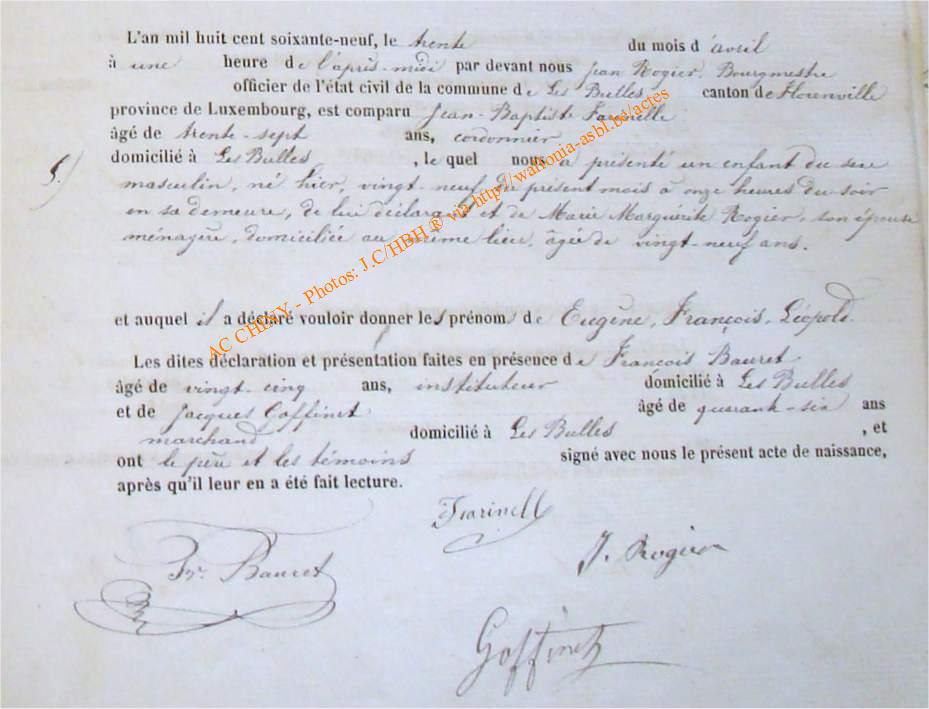 L'an mil huit cent soixante-neuf, le trente du mois d'avril
à une heure de l'après-midi par devant nous Jean Rogier, Bourgmestre
officier de l'état civil de la commune de Les Bulles canton de Florenville
province de Luxembourg, est comparu Jean-Baptiste Farinelle
âgé de trente-sept ans, cordonnier
5.) domicilié à Les Bulles, le quel nous a présenté un enfant du sexe
masculin, né hier, vingt-neuf du présent mois à onze heures du soir
en sa demeure, de lui déclarant et de Marie Marguérite Rogier, son épouse
ménagère, domiciliée au même lieu, âgée de vingt-neuf ans.
et auquel il a déclaré vouloir donner les prénoms de Eugène, François, Léopold.
Les dites déclaration et présentation faites en présence de François Bauret
âgé de vingt-cinq ans, instituteur domicilié à Les Bulles
et de Jacques Goffinet âgé de quarante-six ans
marchand domicilié à Les Bulles, et
ont le père et les témoins signé avec nous le présent acte de naissance,
après qu'il leur en a été fait lecture.
Farinell
Fr. Bauret
J. Rogier
Goffinet
AC CHINY - Photos: J.C/HBH ® via http://wallonia-asbl.be/actes